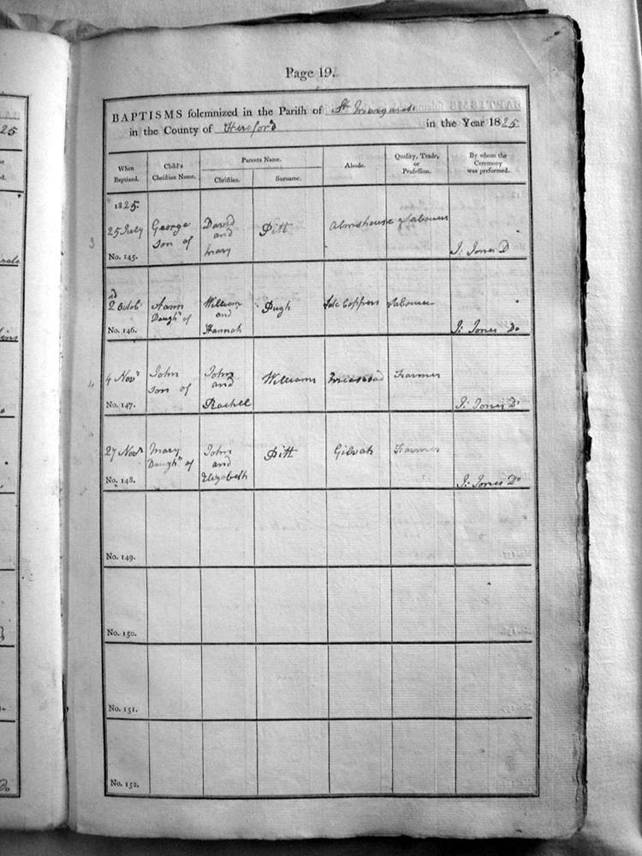 Page 19.
BAPTISMS solemnized in the Parish of St Margarets
in the County of Hereford in the Year 1825
When Baptized.
Child's Christian Name.
Parents Name.
Christian.
Surname.
Abode.
Quality, Trade, or Profession.
By whom the Ceremony was performed.
1825
25 July
No. 145.
George
son of
David
and
Mary
Pitt
Almshouse
Labourer
J: Jones Do
2d Octob.
No. 146.
Daughr of
William
and
Hannah
Pugh
Labourer
J: Jones Do
4 Novr
No. 147.
John
son of
John
and
Rachel
Williams
Farmer
J: Jones Do
27 Novr
No. 148.
Mary
Daughr of
John
and
Elizabeth
Pitt
Gilvah
Farmer
J: Jones Do
No. 149.
No. 150.
No. 151.
No. 152.
25